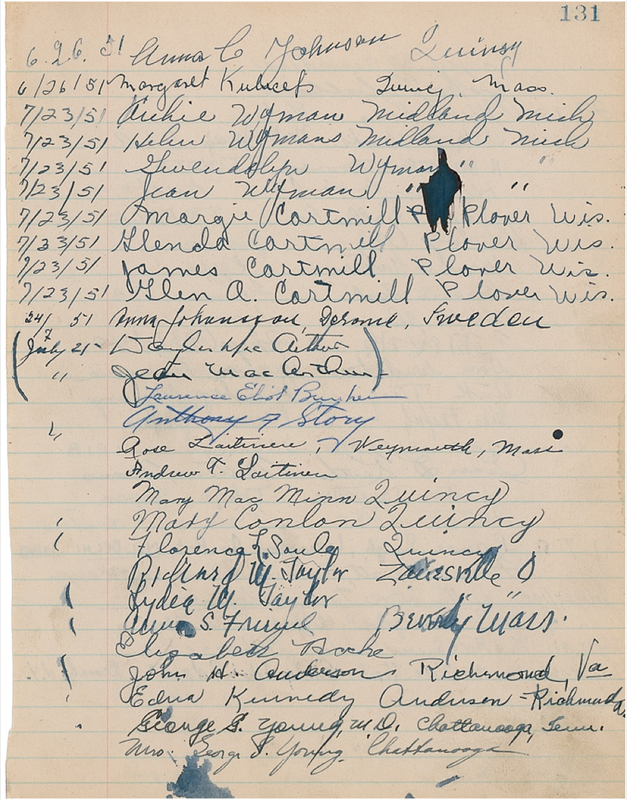 131
6.26.51 Anna C Johnson Quincy
6/26/51 Margaret Quincy, Mass.
7/23/51 Archie Wyman Midland Mich
7/23/51 Helen Wymans Midland Mich
7/23/51 Gwendolyn Wyman " "
7/23/51 Jean Wyman " "
7/23/51 Margie Cartmill Plover Wis.
7/23/51 Glenda Cartmill Plover Wis.
7/23/51 James Cartmill Plover Wis.
7/23/51 Glen A. Cartmill Plover Wis.
51 Anna Johansson, Sweden
(July 21- Douglas MacArthur)
" Jean MacArthur
Laurence Eliot Bunker
Anthony F Story
" Rose Laitinen, Weymouth, Mass
Andrew F. Laitinen
Mary Mac Minn Quincy
Mary Conlon Quincy
Florence L. Soule Quincy
Richard W. Taylor Zanesville O
Lydea W. Taylor
Anna S. Beverly Mass.
Elizabeth
John H. Anderson Richmond, Va
Edna Kennedy Anderson - Richmond
George G. Young, M.D. Chattanooga, Tenn.
Mrs. George G. Young, Chattanooga